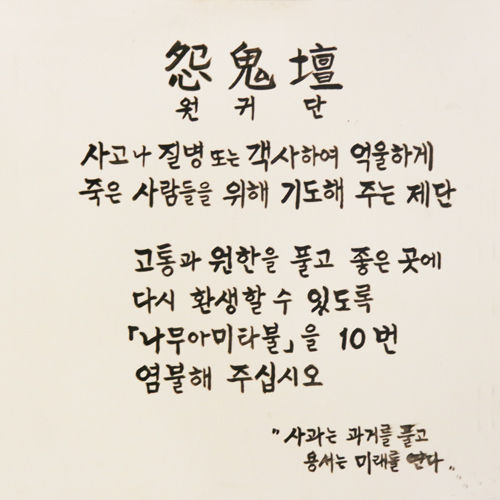 怨鬼壇
원귀단
사고나 질병 또는 객사하여 억울하게
죽은 사람들을 위해 기도해 주는 제단
고통과 원한을 풀고 좋은 곳에
다시 환생할 수 있도록
「나무아미타불」을 10번
염불해 주십시오
"사과는 과거를 풀고
용서는 미래를 연다"